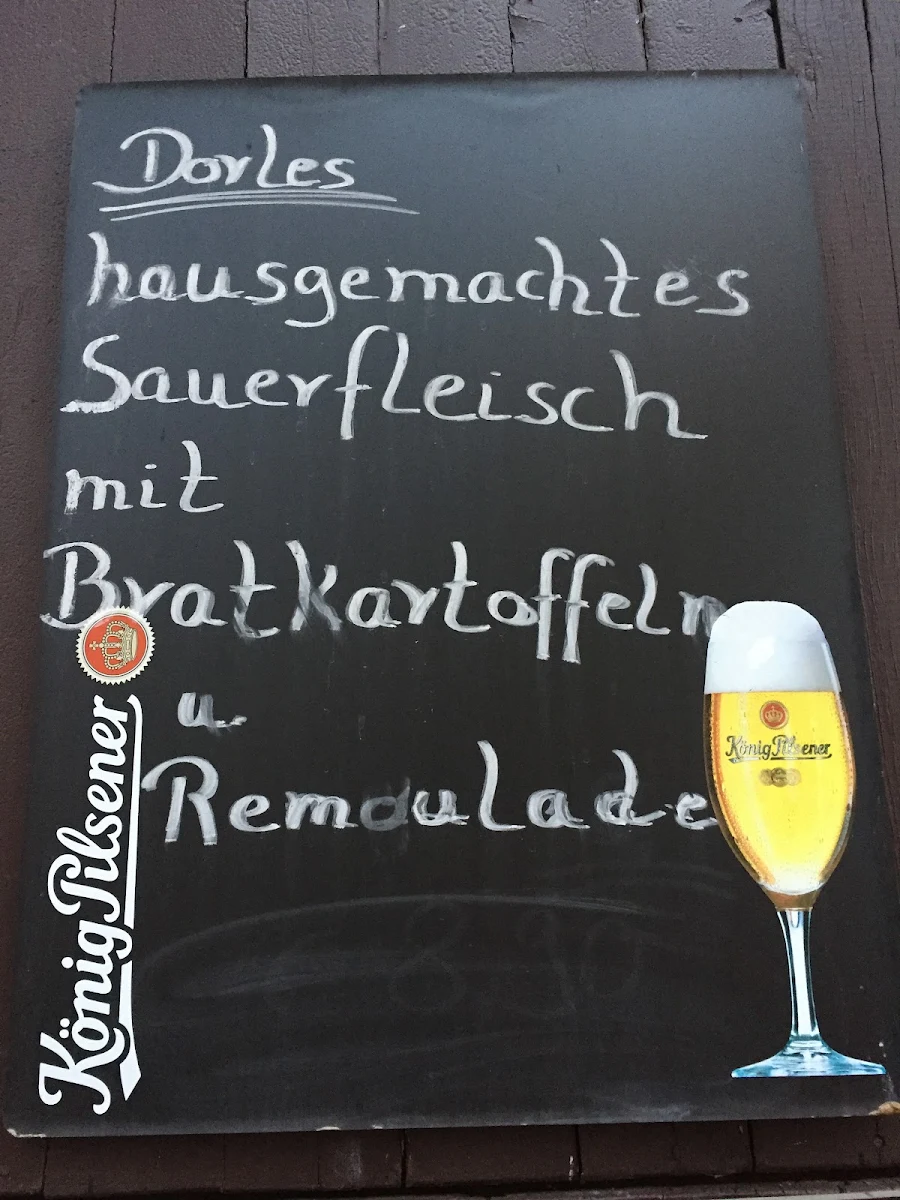 Dorles
hausgemachtes
Sauerfleisch
mit
Bratkartoffeln
u.
Remoulade
König Pilsener
König Pilsener